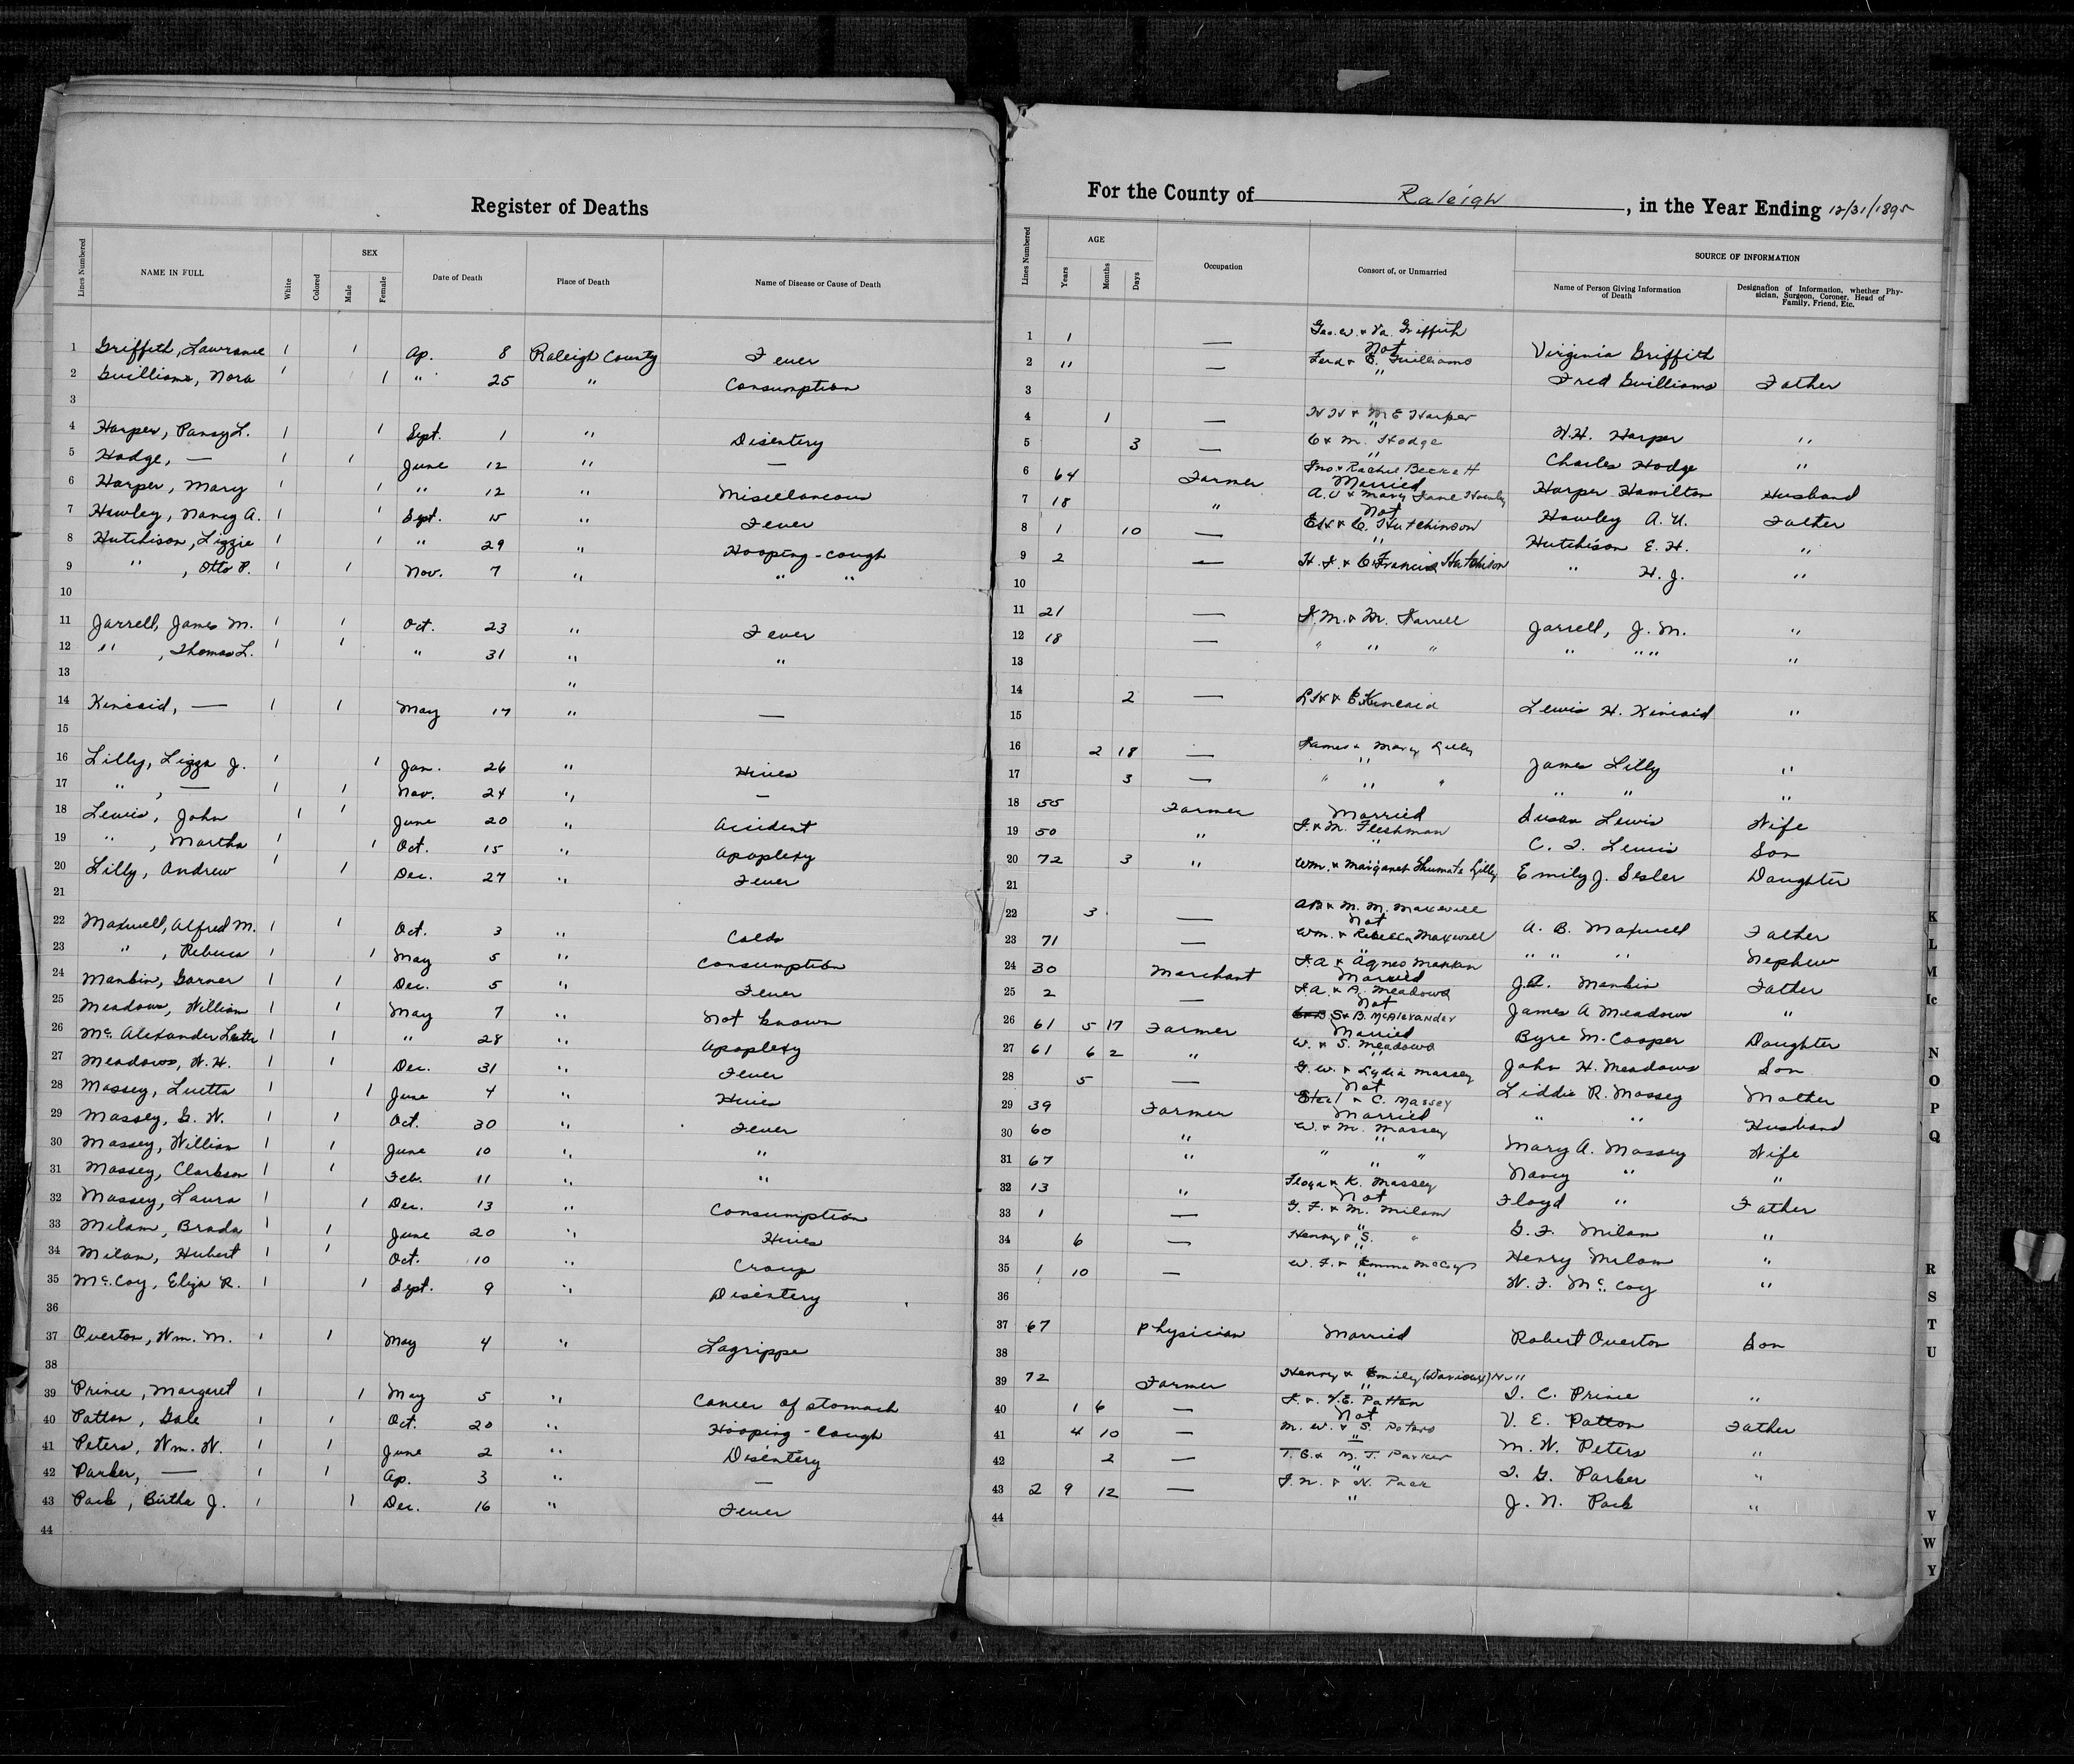 Register of Deaths
Lines Numbered NAME IN FULL White Colored SEX Male Female Date of Death Place of Death Name of Disease or Cause of Death
1 Griffith, Lawrance 1 1 Ap. 8 Raleigh County Fever
2 Guilliams, Nora 1 1 " 25 " Consumption
3
4 Harper, Pansy L. 1 1 Sept. 1 " Disentery
5 Hodge, — 1 1 June 12 " —
6 Harper, Mary 1 1 " 12 " Miscellaneous
7 Hawley, Nancy A. 1 1 Sept. 15 " Fever
8 Hutchison, Lizzie 1 1 " 29 " Hooping-cough
9 " , Otto P. 1 1 Nov. 7 " " "
10
11 Jarrell, James M. 1 1 Oct. 23 " Fever
12 " , Thomas L. 1 1 " 31 " "
13 "
14 Kincaid, — 1 1 May 17 " —
15
16 Lilly, Lizza J. 1 1 Jan. 26 " Hives
17 " , — 1 1 Nov. 24 " —
18 Lewis, John 1 1 June 20 " Accident
19 " , Martha 1 1 Oct. 15 " Apoplexy
20 Lilly, Andrew 1 1 Dec. 27 " Fever
21
22 Maxwell, Alfred M. 1 1 Oct. 3 " Colds
23 " , Rebecca 1 1 May 5 " Consumption
24 Mankin, Garner 1 1 Dec. 5 " Fever
25 Meadows, William 1 1 May 7 " Not known
26 Mc Alexander 1 1 " 28 " Apoplexy
27 Meadows, W. H. 1 1 Dec. 31 " Fever
28 Massey, Luetta 1 1 June 4 " Hives
29 Massey, G. W. 1 1 Oct. 30 " Fever
30 Massey, William 1 1 June 10 " "
31 Massey, Clarkson 1 1 Feb. 11 " "
32 Massey, Laura 1 1 Dec. 13 " Consumption
33 Milam, Brada 1 1 June 20 " Hives
34 Milam, Hubert 1 1 Oct. 10 " Croup
35 McCoy, Eliza R. 1 1 Sept. 9 " Disentery
36
37 Overton, Wm. M. 1 1 May 4 " Lagrippe
38
39 Prince, Margaret 1 1 May 5 " Cancer of stomach
40 Patton, Gale 1 1 Oct. 20 " Hooping-Cough
41 Peters, Wm. W. 1 1 June 2 " Disentery
42 Parker, — 1 1 Ap. 3 " —
43 Pack, Birtha J. 1 1 Dec. 16 " Fever
44
For the County of Raleigh, in the Year Ending 12/31/1895
Lines Numbered AGE Years Months Days Occupation Consort of, or Unmarried SOURCE OF INFORMATION
Name of Person Giving Information of Death Designation of Information, whether Physician, Surgeon, Coroner, Head of Family, Friend, Etc.
1 1 — Geo. W. & Va. Griffith Not Virginia Griffith
2 11 — Ferd & E. Guilliams " Fred Guilliams Father
3
4 1 — W H & M E Harper " W. H. Harper "
5 3 — C & M. Hodge " Charles Hodge "
6 64 Farmer Jno & Rachel Beckett Married Harper Hamilton Husband
7 18 " A. U & Mary Jane Hawley Not Hawley A. U. Father
8 1 10 — E H & C. Hutchinson " Hutchison E. H. "
9 2 — H. J. & C Francis Hutchison " H. J. "
10
11 21 — J. M. & M. Jarrell Jarrell, J. M. "
12 18 — " " " " " " "
13
14 2 — L H & E Kincaid Lewis H. Kincaid "
15
16 2 18 — James & Mary Lilly " James Lilly "
17 3 — " " " " " "
18 55 Farmer Married Susan Lewis Wife
19 50 " J. & M. Fleshman " C. I. Lewis Son
20 72 3 " Wm. & Margaret Shumate Lilly Emily J. Sesler Daughter
21
22 3 — AB & M. M. Maxwell Not A. B. Maxwell Father
23 71 — Wm. & Rebecca Maxwell " " " " Nephew
24 30 Merchant J. A & Agnes Mankin Married J. A. Mankin Father
25 2 — J. A. & A. Meadows Not James A Meadows "
26 61 5 17 Farmer S & B. McAlexander Married Byre M. Cooper Daughter
27 61 6 2 " W. & S. Meadows " John H. Meadows Son
28 5 — G. W. & Lydia Massey Not Liddie R. Massey Mother
29 39 Farmer Steel & C. Massey Married " " Husband
30 60 " W. & M. Massey " Mary A. Massey Wife
31 67 " " " " " Nancy " "
32 13 " Floyd & K. Massey Not Floyd " Father
33 1 — G. F. & M. Milam " G. F. Milam "
34 6 — Henry & S. " " Henry Milam "
35 1 10 — W. F. & Emma McCoy " W. F. McCoy "
36
37 67 Physician Married Robert Overton Son
38
39 72 Farmer Henry & Emily " I. C. Prince "
40 1 6 — J. & V. E. Patton Not V. E. Patton Father
41 4 10 — M. W. & S. Peters " M. W. Peters "
42 2 — T. G. & M. J. Parker " I. G. Parker "
43 2 9 12 — J. N. & N. Pack " J. N. Pack "
44
K
L
M
Mc
N
O
P
Q
R
S
T
U
V
W
Y